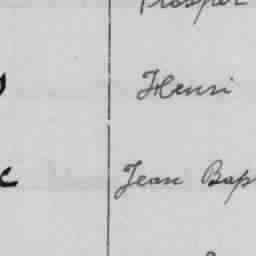 Prosper
Henri
Jean Bap